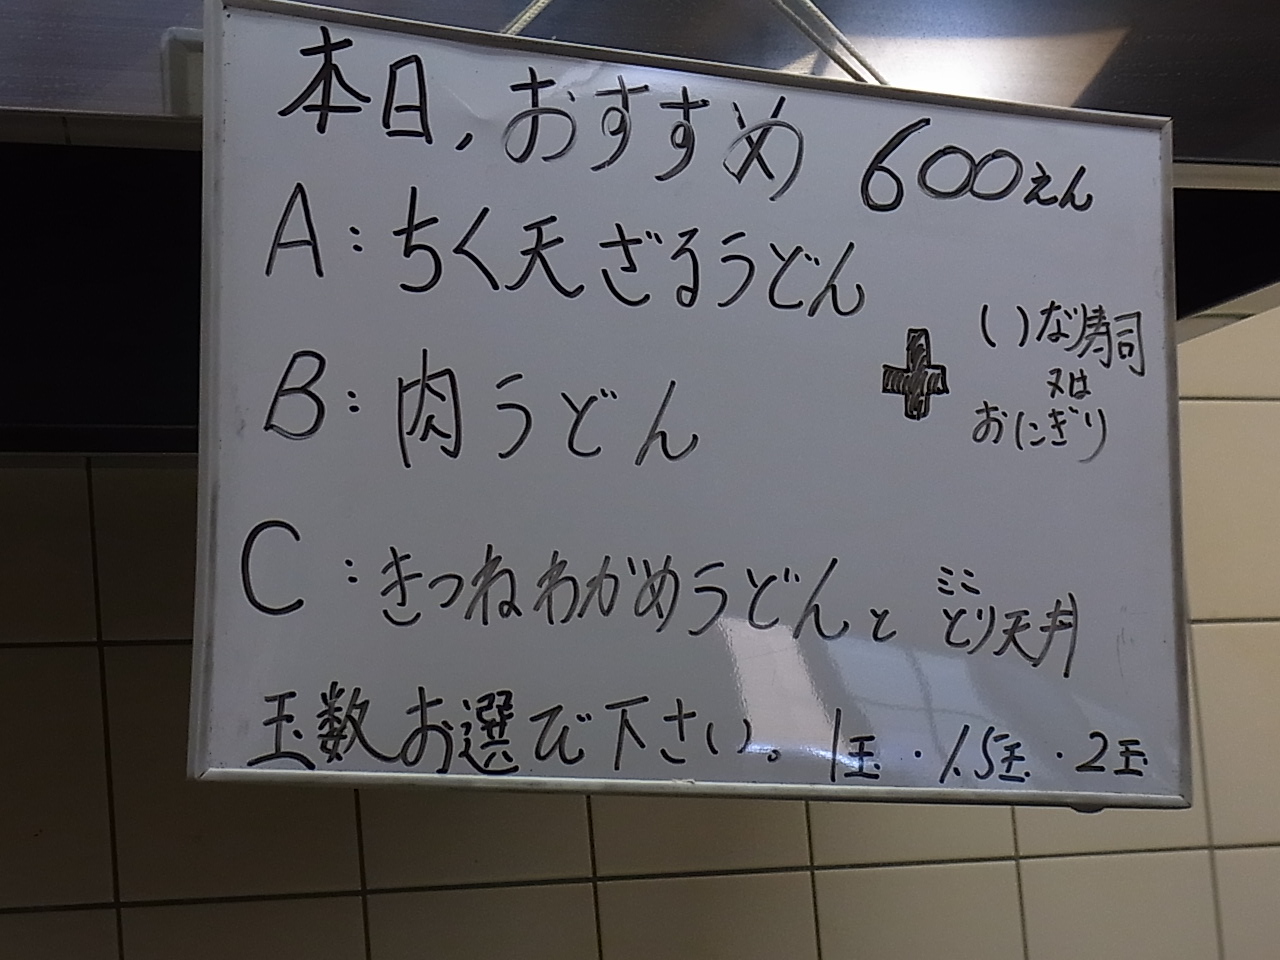 本日,おすすめ 600えん
A:ちく天ざるうどん
B:肉うどん
+ いな寿司
又は
おにぎり
C:きつねわかめうどんと ミニとり天丼
玉数お選び下さい。1玉・1.5玉・2玉